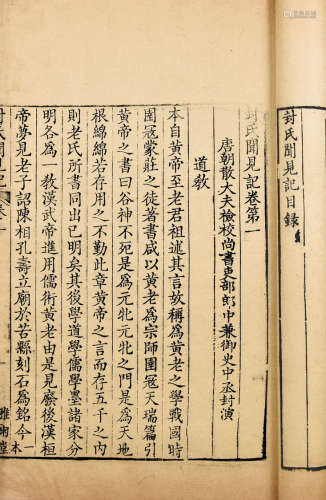 封氏聞見記目錄
封氏聞見記卷第一
唐朝散大夫檢校尚書吏部郎中兼御史中丞封演
道教
本自黃帝至老君祖述其言故稱為黃老之學戰國時
圄冦蒙莊之徒著書咸以黃老為宗師圄冦天瑞篇引
黃帝之書曰谷神不死是為元牝元牝之門是為天地
根綿綿若存用之不勤此章黃帝之言而存五千之內
則老氏所書同出已明矣其後學道學儒學墨諸家分
明各為一教漢武帝進用儒術黃老由是見廢後漢桓
帝夢見老子詔陳相孔壽立廟於苦縣刻石為銘今本
封氏聞見記 卷一
雅雨堂